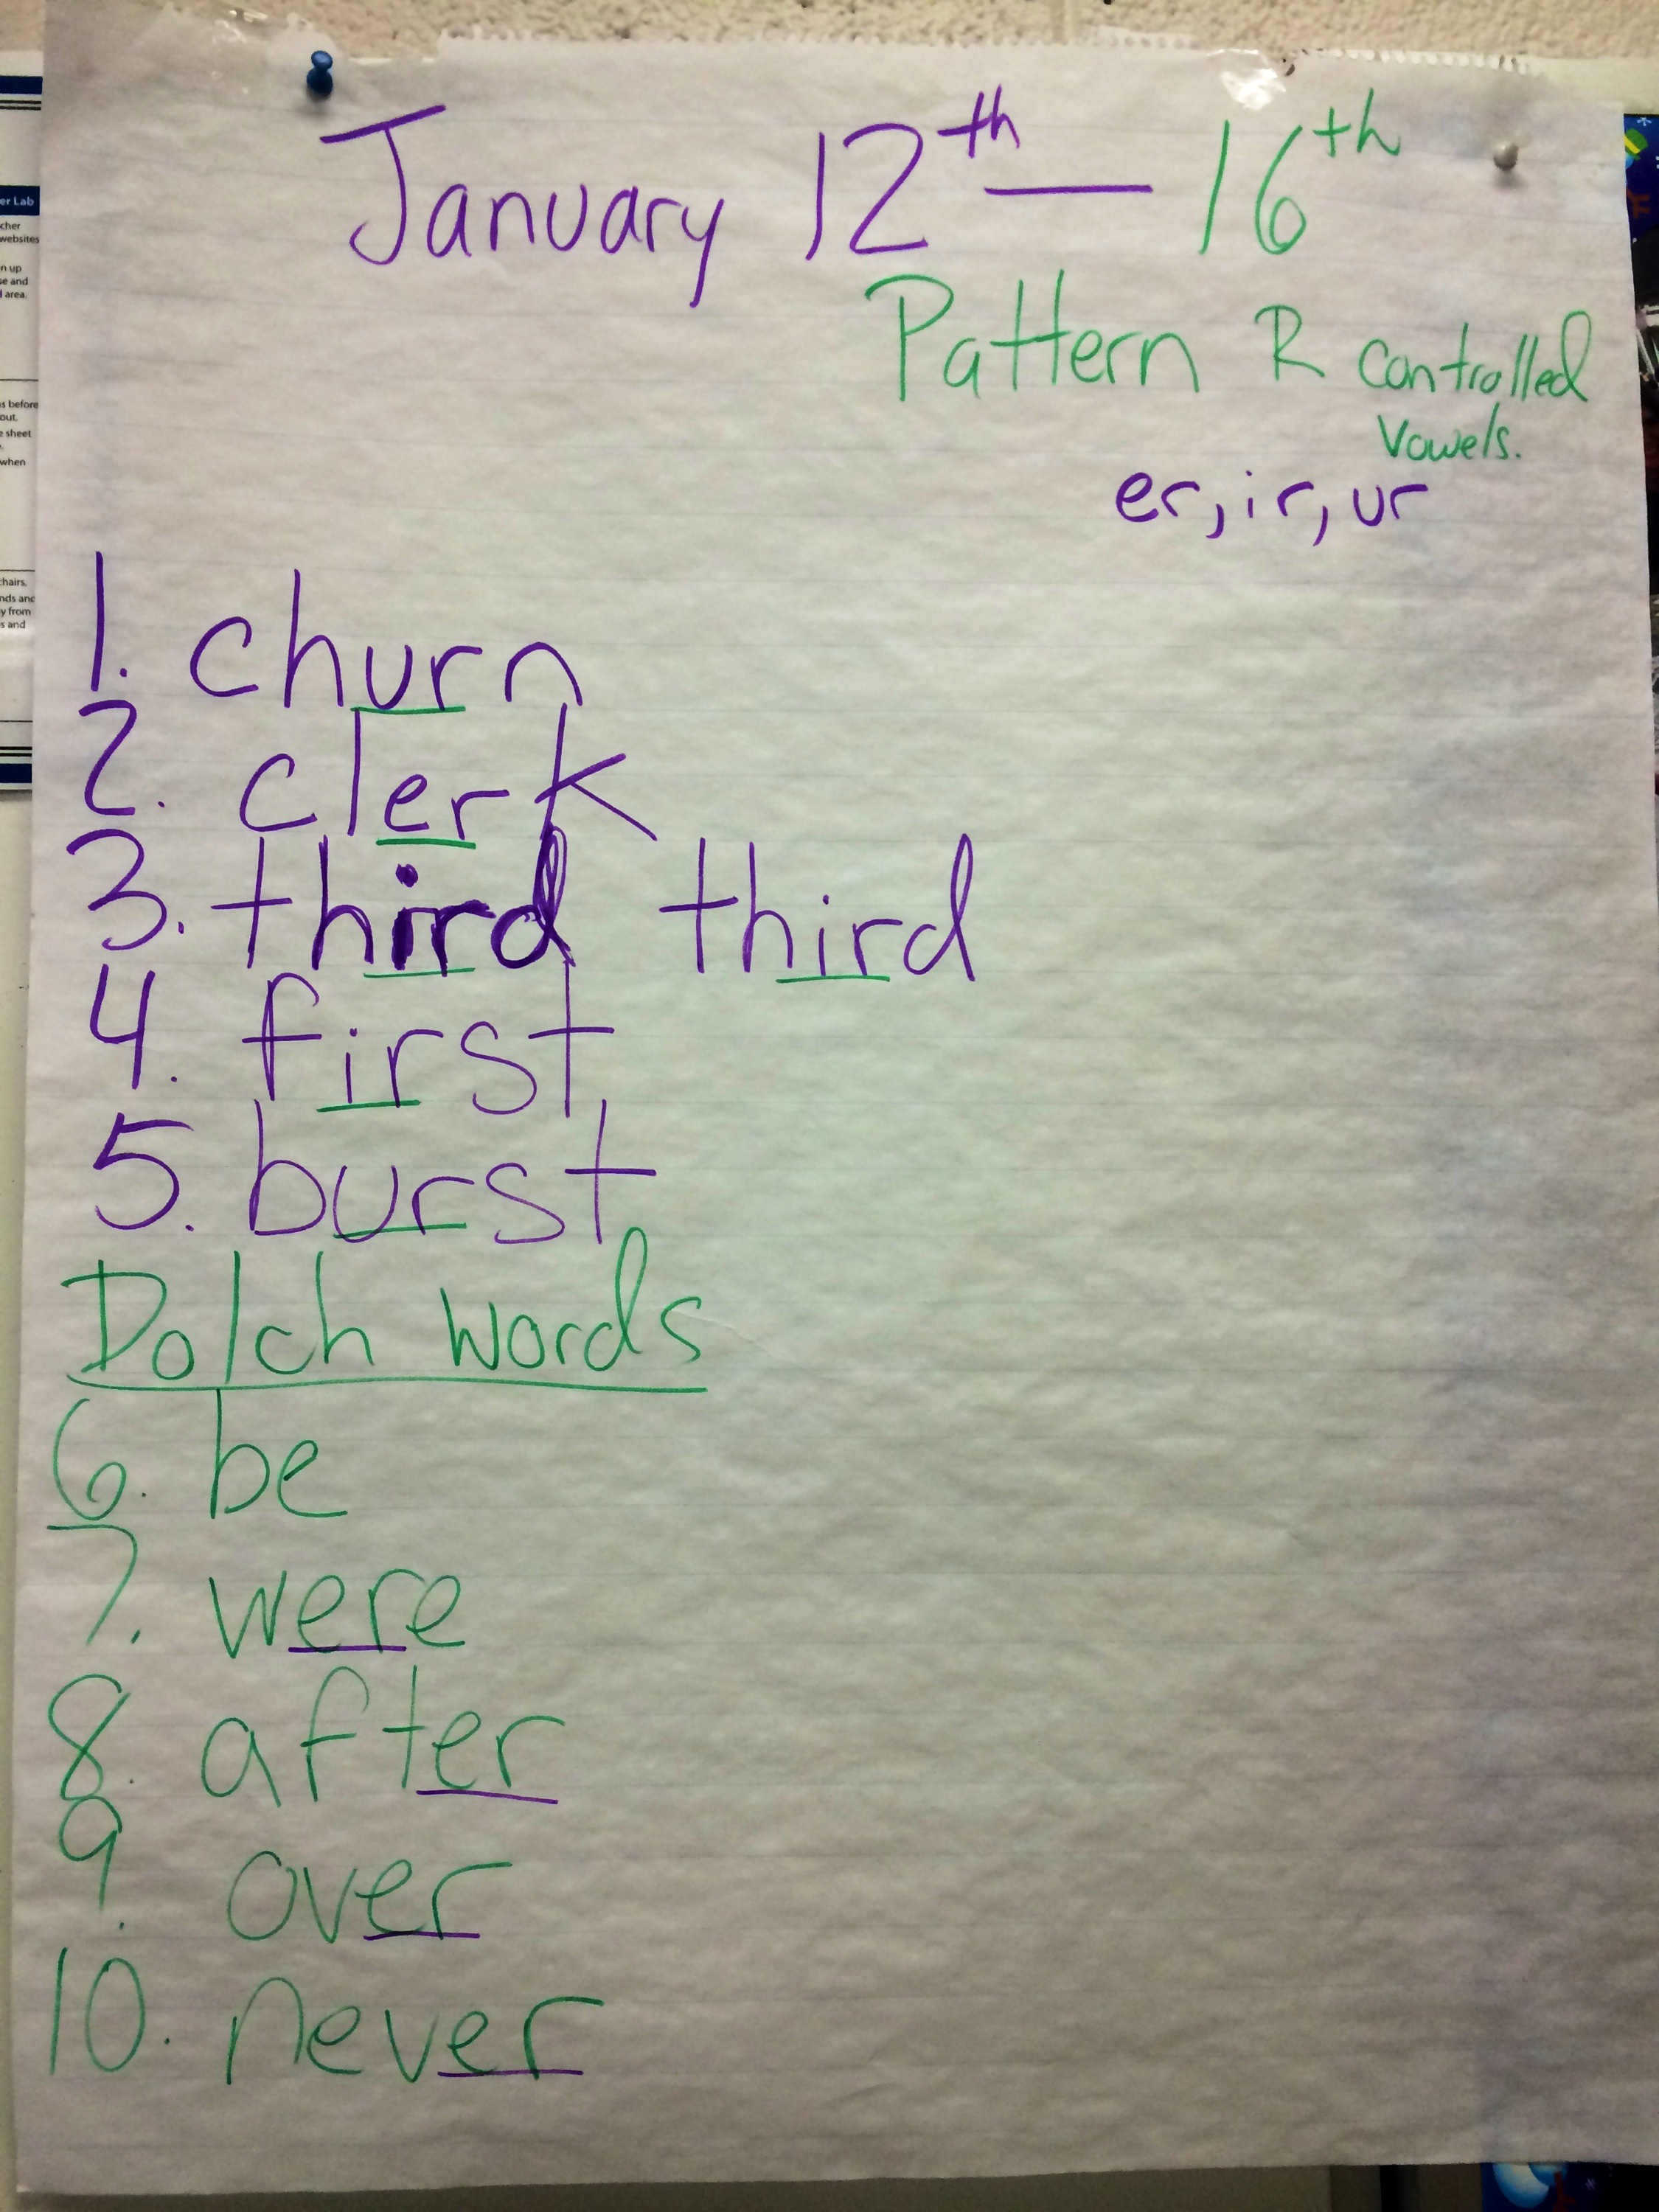 January 12th — 16th
Pattern R controlled
vowels.
er, ir, ur
1. churn
2. clerk
3. third third
4. first
5. burst
Dolch words
6. be
7. were
8. after
9. over
10. never
er Lab
cher
websites
n up
se and
area.
s before
out.
e sheet
when
hairs.
nds and
y from
s and